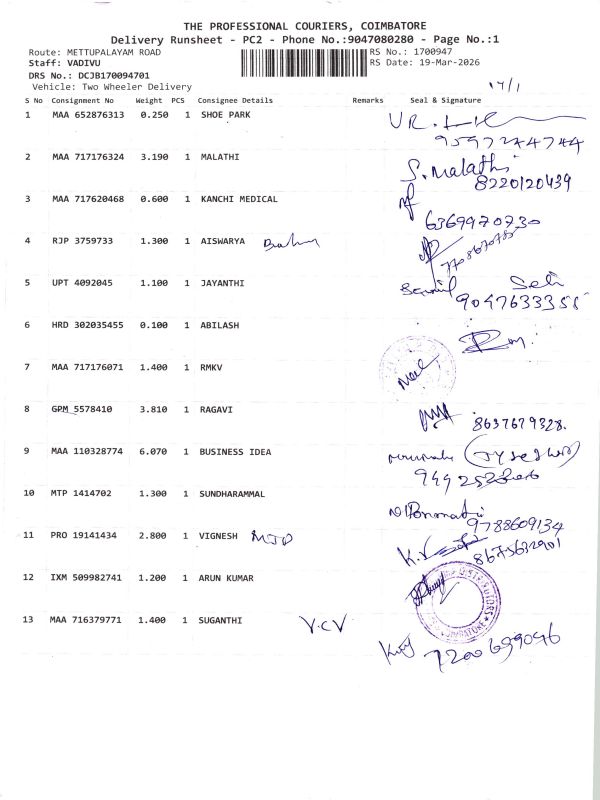 THE PROFESSIONAL COURIERS, COIMBATORE
Delivery Runsheet - PC2 - Phone No.:9047080280 - Page No.:1
Route: METTUPALAYAM ROAD RS No.: 1700947
Staff: VADIVU RS Date: 19-Mar-2026
DRS No.: DCJB170094701
Vehicle: Two Wheeler Delivery
S No Consignment No Weight PCS Consignee Details Remarks Seal & Signature
1 MAA 652876313 0.250 1 SHOE PARK
9597244744
2 MAA 717176324 3.190 1 MALATHI S. Malathi
8220120439
3 MAA 717620468 0.600 1 KANCHI MEDICAL
6369970730
4 RJP 3759733 1.300 1 AISWARYA
5 UPT 4092045 1.100 1 JAYANTHI
6 HRD 302035455 0.100 1 ABILASH
7 MAA 717176071 1.400 1 RMKV
8 GPM 5578410 3.810 1 RAGAVI
8637679328.
9 MAA 110328774 6.070 1 BUSINESS IDEA
10 MTP 1414702 1.300 1 SUNDHARAMMAL
9788609134
11 PRO 19141434 2.800 1 VIGNESH
8675632901
12 IXM 509982741 1.200 1 ARUN KUMAR
13 MAA 716379771 1.400 1 SUGANTHI V.CV
7200699046